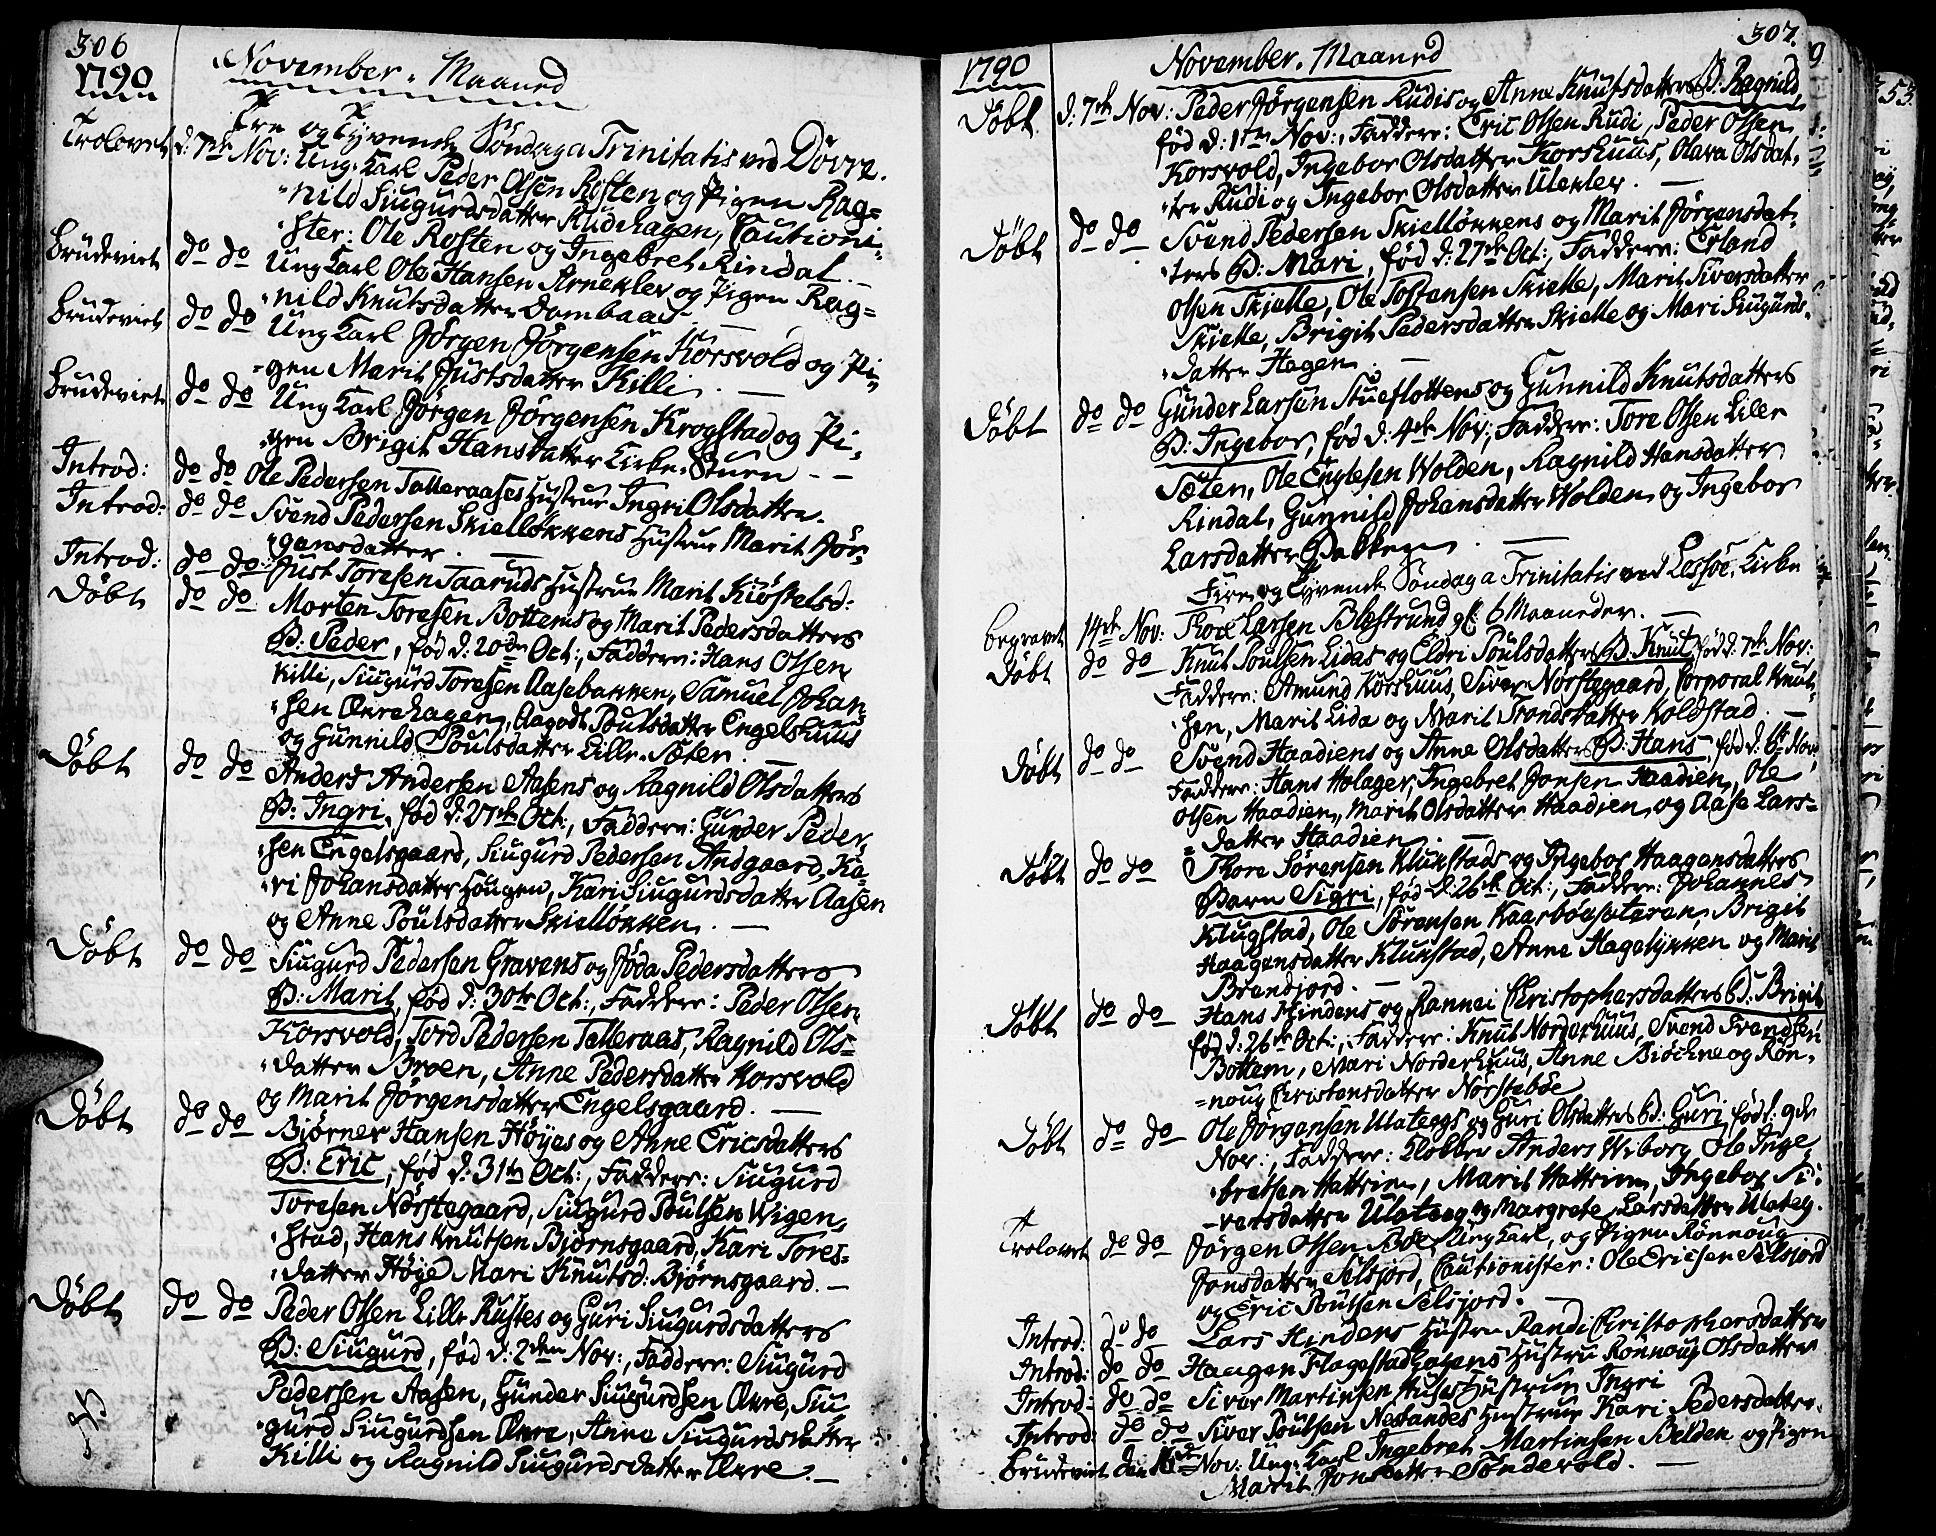 306
1790
November. Maaned
Tre og Tyvende Søndag a Trinitatis ved Dovre.
Trolovet d. 7de Nov: Ung. Karl Peder Olsen Rosten og Pigen Rag=
nild Siugurdsdatter Rudihagen, Cautioni=
ster: Ole Rosten og Ingebret Rindal. —
Brudeviet do do Ung Karl Ole Hansen Arneklev og Pigen Rag=
nild Knutsdatter Dombaas —
Brudeviet do do Ung Karl Jørgen Jørgensen Korsvold og Pi=
gen Marit Justsdatter Killi. —
Brudeviet do do Ung Karl Jørgen Jørgensen Krogstad og Pi=
gen Brigit Hansdatter Kirke-Stuen - -
Introd: do do Ole Pedersen Talleraases Hustrue Ingri Olsdatter.
Introd: do do Svend Pedersen Skielløkkens Hustrue Marit Jør=
gensdatter. —
Introd: do do Just Toresen Taaruds Hustrue Marit Kiøstelsd:
Døbt do do Morten Toresen Bottems og Marit Pedersdatters
B: Peder, fød d: 20de Oct:, Faddere: Hans Olsen
Killi, Siugurd Toresen Aasebakken, Samuel Johan=
sen Økrehagen, Aagodt Poulsdatter Engelshuus
og Gunnild Poulsdatter Lille-Sæter. —
Døbt do do Anders Andersen Aasens og Ragnild Olsdatters
B: Ingri, fød d: 27de Oct:, Faddere: Gunder Peder=
sen Engelsgaard, Siugurd Pedersen Andgaard, Ka=
ri Johansdatter Hougen, Kari Siugurdsdatter Aasen
og Anne Poulsdatter Skielløkken. —
Døbt do do Siugurd Pedersen Gravens og Jøda Pedersdatters
B: Marit, fød d: 30te Oct:, Faddere: Peder Olsen
Korsvold, Tord Pedersen Talleraas, Ragnild Ols=
datter Broen, Anne Pedersdatter Korsvold
og Marit Jørgensdatter Engelsgaard. —
Døbt do do Biørner Hansen Høyes og Anne Ericsdatters
B: Eric, fød d: 31te Oct:, Faddere: Siugurd
Toresen Nørstegaard, Siugurd Poulsen Wigen=
stad, Hans Knutsen Biørnsgaard, Kari Tores=
datter Høye Mari Knutsd: Biørnsgaard. —
Døbt do do Peder Olsen Lille Rustes og Guri Siugurdsdatters
B: Siugurd, fød d: 2den Nov:, Faddere: Siugurd
Pedersen Aasen, Gunder Siugurdsen Økre, Siu=
gurd Siugurdsen Økre, Anne Siugurdsdatter
Killi og Ragnild Siugurdsdatter Økre. —
307.
1790
November. Maaned
Døbt d: 7de Nov: Peder Jørgensen Rudis og Anne Knutsdatters B: Ragnild,
fød d: 1ste Nov:, Faddere: Eric Olsen Rudi, Peder Olsen
Korsvold, Ingebor Olsdatter Korshuus, Olava Olsdat=
ter Rudi og Ingebor Olsdatter Uleklev. —
Døbt do do Svend Pedersen Skielløkkens og Marit Jørgensdat=
ters B: Mari, fød d: 27de Oct:, Faddere: Erland
Olsen Skielle, Ole Tostensen Skielle, Marit Siversdatter
Skielle, Brigit Pedersdatter Skielle og Mari Siugurds=
datter Hagen. —
Døbt do do Gunder Larsen Stueflottens og Gunnild Knutsdatters
B: Ingebor, fød d: 4de Nov:, Faddere: Tore Olsen Lille
Sæter, Ole Englesen Wolden, Ragnild Hansdatter
Rindal, Gunnild Johansdatter Wolden og Ingebor
Larsdatter Bakken. —
Fire og Tyvende Søndag a Trinitatis ved Lessøe Kirke
Begravet 14de Nov: Thore Larsen Blæstrund gl: 6 Maaneder. —
Døbt do do Knut Poulsen Lidas og Eldri Poulsdatters B: Knut, fød d. 7de Nov:
Faddere: Amund Korshuus, Siver Norstegaard, Corporal Knut=
sen, Marit Lida og Marit Svendsdatter Koldstad. —
Døbt do do Svend Haadiens og Anne Olsdatters B: Hans, fød d: 6te Nov:
Faddere: Hans Holager, Ingebret Jonsen Haadien, Ole
Olsen Haadien, Marit Olsdatter Haadien, og Aase Lars=
datter Haadien. —
Døbt do do Thore Sørensen Klukstads og Ingebor Haagensdatters
Barn Sigri, fød d: 26de Oct:, Faddere: Johannes
Klugstad, Ole Sørensen Kaarbøesæteren, Brigit
Haagensdatter Klukstad, Anne Hagelykken og Marit
Brendjord. —
Døbt do do Hans Hindens og Rannei Christophersdatters B: Brigit
fød d: 26de Oct:, Faddere: Knut Norderhuus, Svend Svendsen
Bottem, Mari Norderhuus, Anne Biøchne og Røn=
noug Christensdatter Norstebøe
Døbt do do Ole Jørgensen Ulateigs og Guri Olsdatters B: Guri, fød d: 9de
Nov:, Faddere: Klokker Anders Wiborg, Ole Inge=
bretsen Hattrem, Marit Hattrem, Ingebor Si=
versdatter Ulateeg og Margrete Larsdatter Ulateig.
Trolovet do do Jørgen Olsen Bøe, Ung Karl, og Pigen Rønnoug
Jonsdatter Selsjord, Cautionister: Ole Ericsen Selsjord
og Eric Poulsen Selsjord. —
Introd: do do Lars Hindens Hustru Randi Christophersdatter
Introd: do do Haagen Flagestadhagens Hustru Rønnoug Olsdatter
Introd: do do Siver Martinsen Huses Hustrue Ingri
Introd: do do Siver Poulsen Neslandes Hustrue Kari Pedersdatter.
Brudeviet den 16de Nov: Ung-Karl Ingebret Martinsen Belden og Pigen
Marit Jonsdatter Søndevold. —
353.